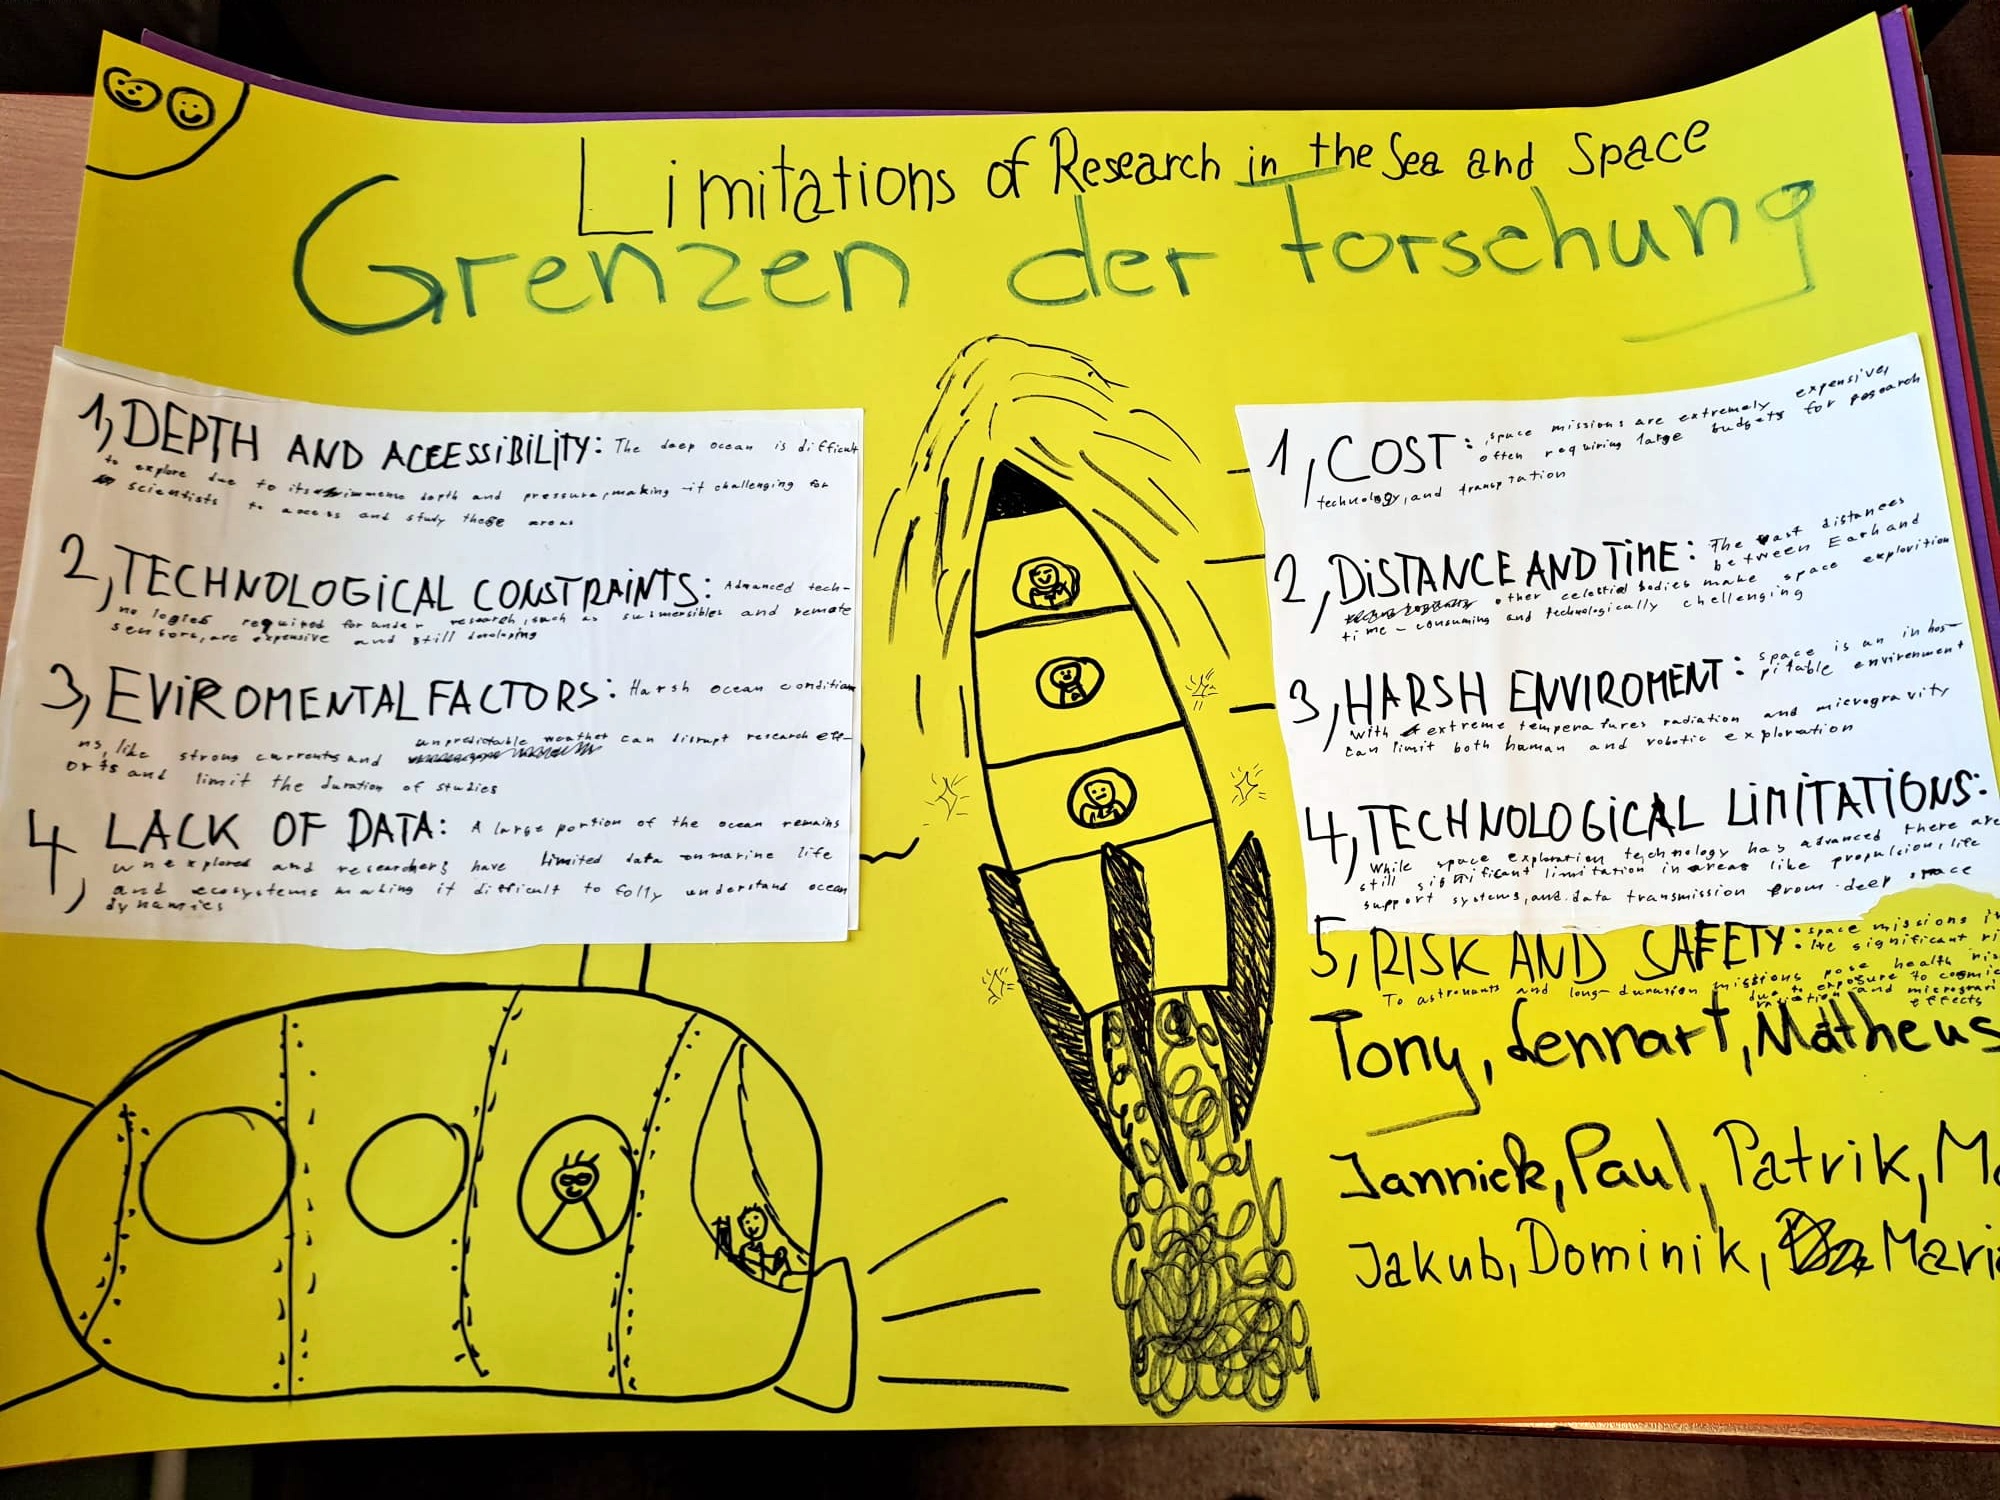 Limitations of Research in the Sea and Space
Grenzen der Forschung
1, DEPTH AND ACEESSiBiLiTY: The deep ocean is difficult
to explore due to its immense depth and pressure, making it challenging for
scientists to access and study these areas
2, TECHNOLOGiCAL CONSTRAiNTS: Advanced tech-
no logies required for under research, such as submersibles and remote
sensors, are expensive and still developing
3, EViROMENTAL FACTORS: Harsh ocean condition
ns, like strong currents and unpredictable weather can disrupt research eff-
orts and limit the duration of studies
4, LACK OF DATA: A large portion of the ocean remains
unexplored and researchers have limited data on marine life
and ecosystems making it difficult to folly understand ocean
dynamics
1, COST: space missions are extremely expensive,
often requiring large budgets for research
technology, and transp tation
2, DiSTANCE AND TiME: The vast distances
between Earh and
other celestial bodies make space explorition
time-consuming and technologically chellenging
3, HARSH ENViROMENT: space is an inhos-
pitable envirenment
with extreme temperatures radiation and microgravity
can limit both human and robotic exploration
4, TECHNOLOGiCAL LiMiTATiONS:
While space exploration technology has advanced there are
still significant limitation in areas like propulsion, life
support systems, and data transmission from deep space
5, RiSK AND SAFETY: space missions i
significant ri
To astronauts and long-duration missions pose health ris
due to exposure to cosmic
radiation and microgravi
effects
Tony, Lennart, Matheus
Jannick, Paul, Patrik, M
Jakub, Dominik, Mari